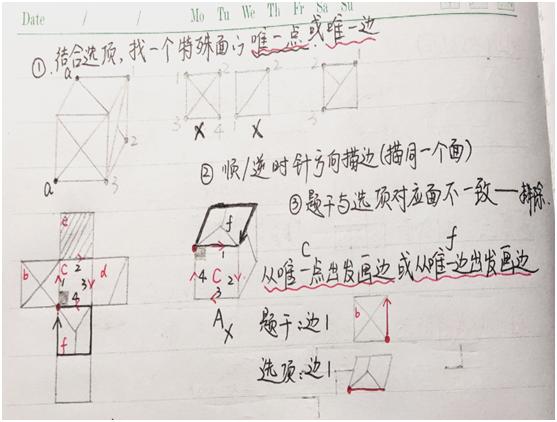 Date / / Mo Tu We Th Fr Sa Su
①.结合选项,找一个特殊面的唯一点或唯一边
a
a
2
3
1 2
3 4
X
1 2
3
X
2
1
3
②顺/逆时针方向描边(描同一个面)
③题干与选项对应面不一致——排除.
c f
从唯一点出发画边或从唯一边出发画边
e
b 1 C 2 3 4 d
f
f
1
4 C 2
3
A X
题干:边1 b
选项:边1